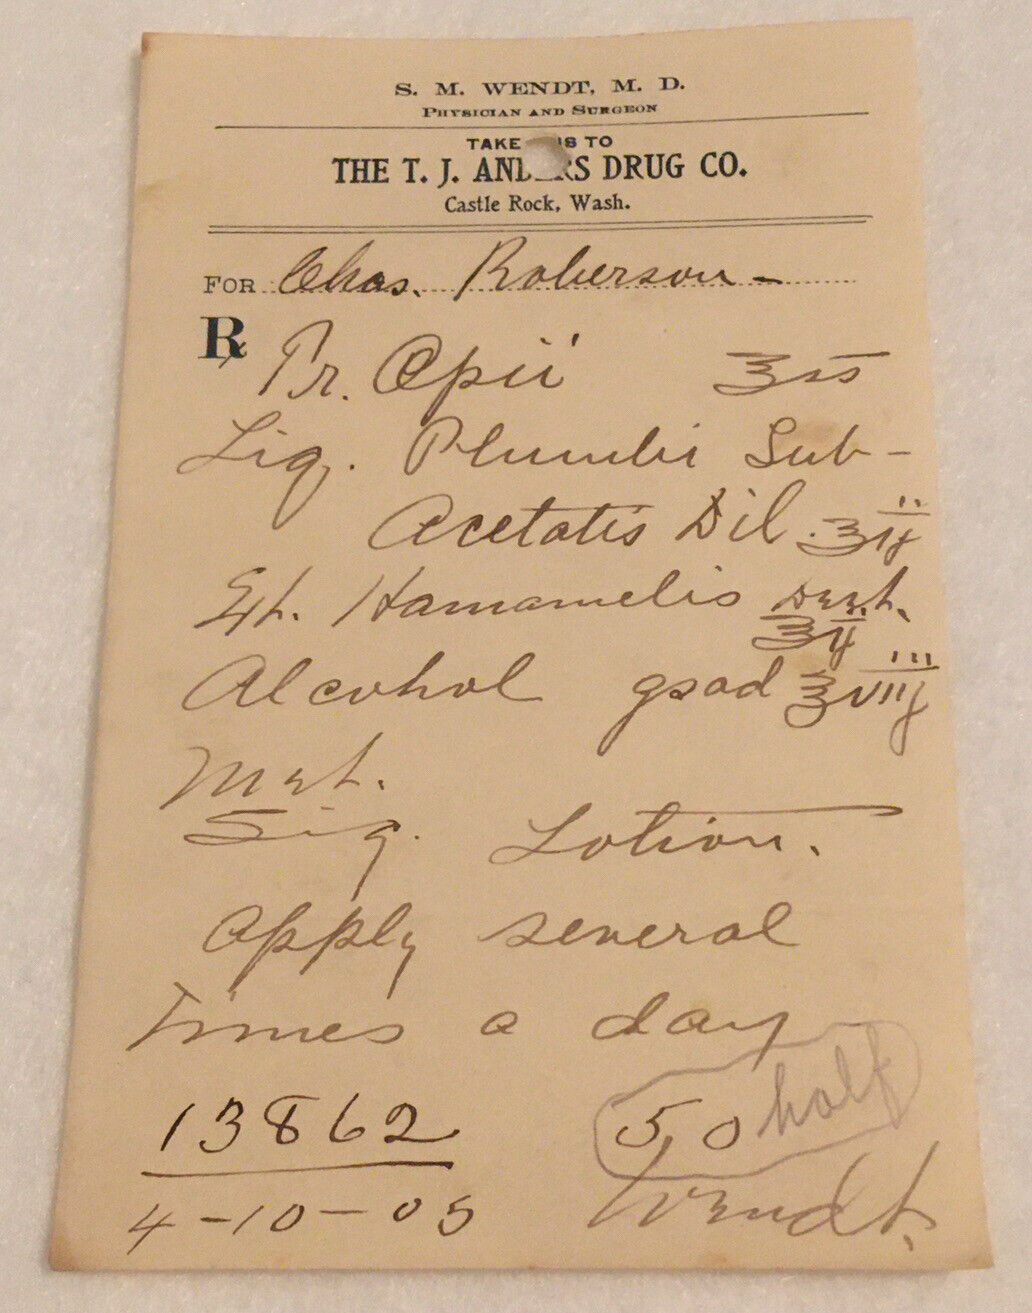 S. M. WENDT, M. D.
PHYSICIAN AND SURGEON
TAKE TO
THE T. J. ANDERS DRUG CO.
Castle Rock, Wash.
FOR Chas. Roberson -
℞ Tr. Opii ʒss
Liq. Plumbi Sub-
Acetatis Dil. ℥ij
Ext. Hamamelis Dest.
℥ij
Alcohol qsad ℥viij
Mxt.
Sig. Lotion.
Apply several
Times a day
13862
50 half
4-10-05 Wendt.